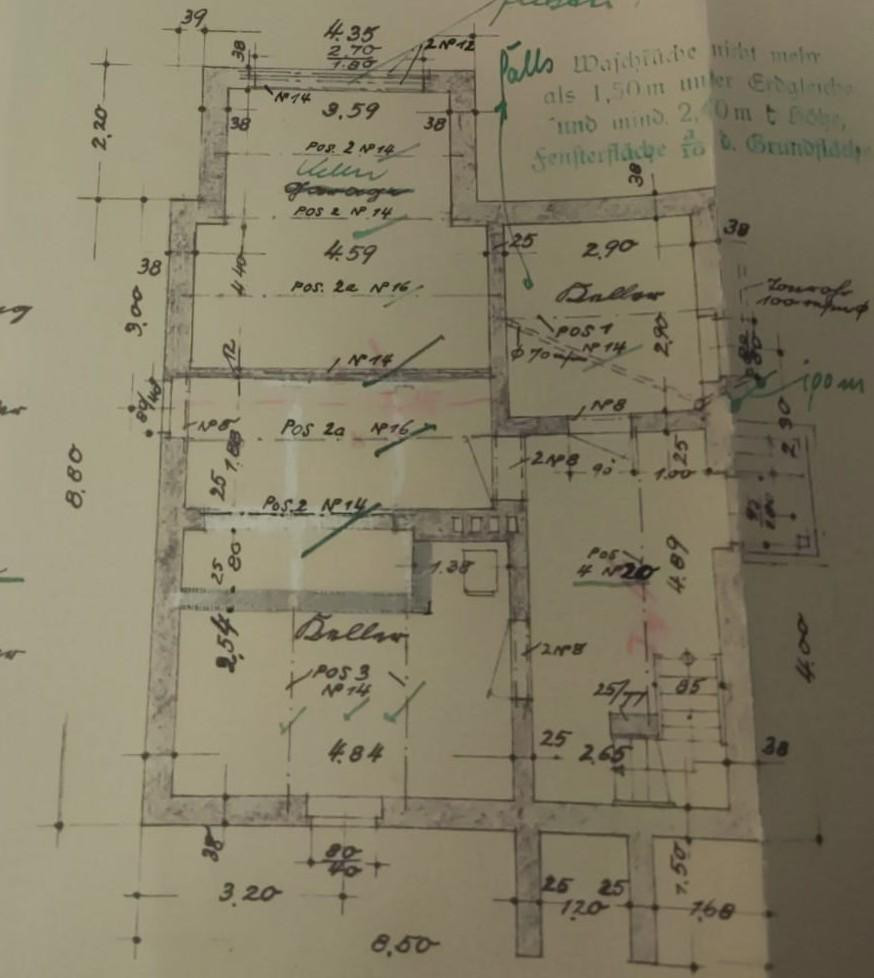 39
4.35
2.70
1.80
2 № 12
38
№ 14
3.59
38
38
2,20
Falls Waschküche nicht mehr
als 1,50 m unter Erdgleiche
und mind. 2,40 m t Höhe,
Fensterfläche 1/10 d. Grundfläche
38
POS. 2 № 14
Keller
Garage
POS 2 № 14
38
4.59
25
2.90
38
4.40
POS. 2a № 16
Keller
Tonrohr
3,00
POS 1
№ 14
2.90
80
12
№ 14
100m
№ 8
№ 8
POS 2a № 16
1.88
25
2 № 8
90
1.00
25
2.90
8.80
POS. 2 № 14
25
80
1.38
POS
4 № 20
4.89
2,54
Keller
2 № 8
4.00
POS 3
№ 14
25/77
85
4.84
25
2.65
38
38
80
40
1.50
3.20
25
25
120
1.60
8,50